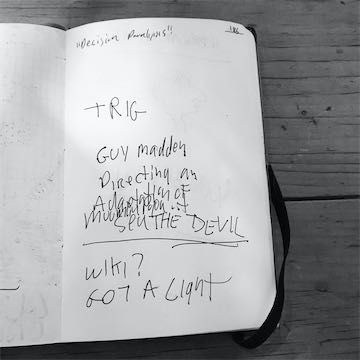 "Decision Paralysis"!
186
+RIG
GUY Madden
Directing an
Adaptation of
SELL THE DEVIL
wiki?
GOT A Light